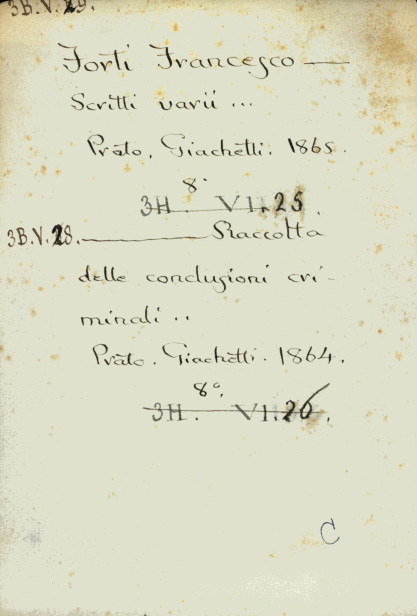 3B.V.29.
Forti Francesco —
Scritti varii ...
Prato. Giachetti. 1865.
8°
3H. VI.25.
3B.V.28. ——— Raccolta
delle conclusioni cri-
minali ..
Prato. Giachetti. 1864.
8°.
3H. VI.26.
C